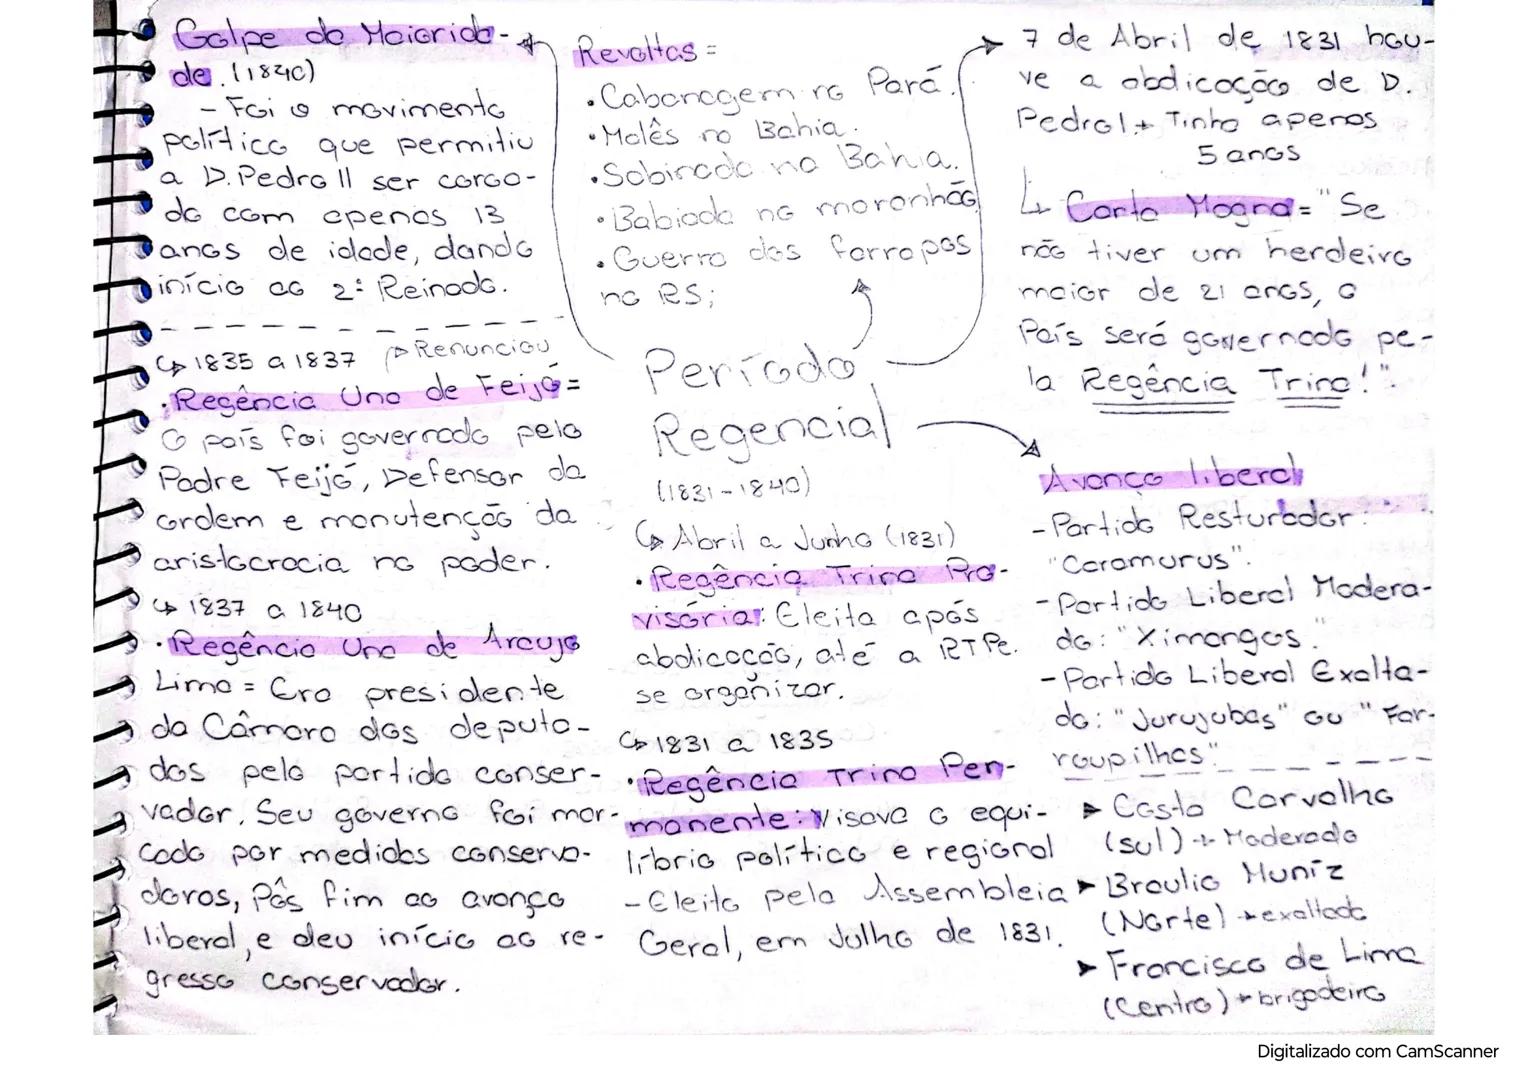 Golpe da Maiorida-
de (1840)
- Foi o movimento
político que permitiu
a D. Pedro II ser coroa-
do com apenas 13
anos de idade, dando
início ao 2º Reinado.
↳ 1835 a 1837 → Renunciou
• Regência Una de Feijó =
O país foi governado pelo
Padre Feijó, Defensor da
ordem e manutenção da
aristocracia no poder.
↳ 1837 a 1840
• Regência Una de Araujo
Lima = Era presidente
da Câmara dos deputa-
dos pelo partido conser-
vador. Seu governo foi mar-
cado por medidas conserva-
doras, Pôs fim ao avanço
liberal, e deu início ao re-
gresso conservador.
Revoltas =
• Cabanagem no Pará.
• Malês na Bahia.
• Sabinada na Bahia.
• Balaiada no maranhão
• Guerra dos farrapos
no RS;
Período
Regencial
(1831-1840)
↳ Abril a Junho (1831)
• Regência Trina Pro-
visória: Eleita após
abdicação, até a RTPe.
se organizar.
↳ 1831 a 1835
• Regência Trina Per-
manente: Visava o equi-
líbrio político e regional
- Eleita pela Assembleia
Geral, em Julho de 1831.
→ 7 de Abril de 1831 hou-
ve a abdicação de D.
Pedro I → Tinha apenas
5 anos
↳ Carta Magna = "Se
não tiver um herdeiro
maior de 21 anos, o
País será governado pe-
la Regência Trina!".
Avanço liberal
- Partido Resturador:
"Caramurus".
- Partido Liberal Modera-
do: "Ximangos."
- Partido Liberal Exalta-
do: "Jurujubas" ou "Far-
roupilhas"
➤ Costa Carvalho
(sul) → Moderado
➤ Braulio Muniz
(Norte) → exaltado
➤ Francisco de Lima
(Centro) → brigadeiro
Digitalizado com CamScanner